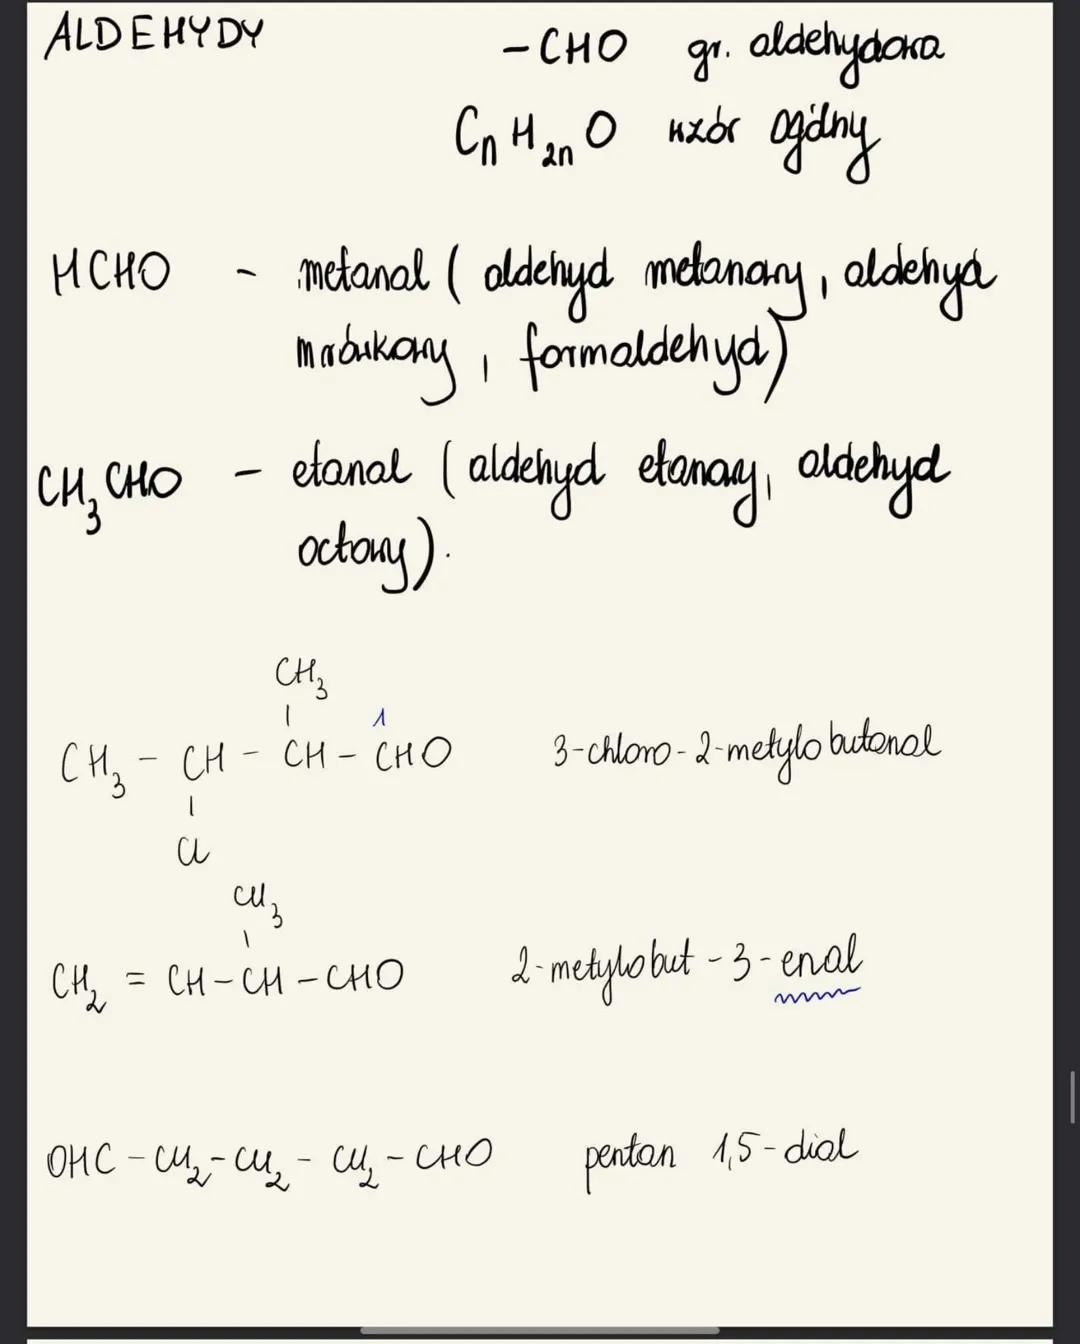 ALDEHYDY
-CHO gr. aldehydowa
CnH2nO wzór ogólny
HCHO - metanal ( aldehyd metanowy, aldehyd
mrówkowy, formaldehyd)
CH3CHO - etanal (aldehyd etanowy, aldehyd
octowy).
CH3
| 1
CH3 - CH - CH - CHO 3-chloro-2-metylobutanal
|
Cl
CH3
|
CH2 = CH-CH-CHO 2-metylobut-3-enal
OHC-CH2-CH2-CH2-CHO pentan 1,5-dial